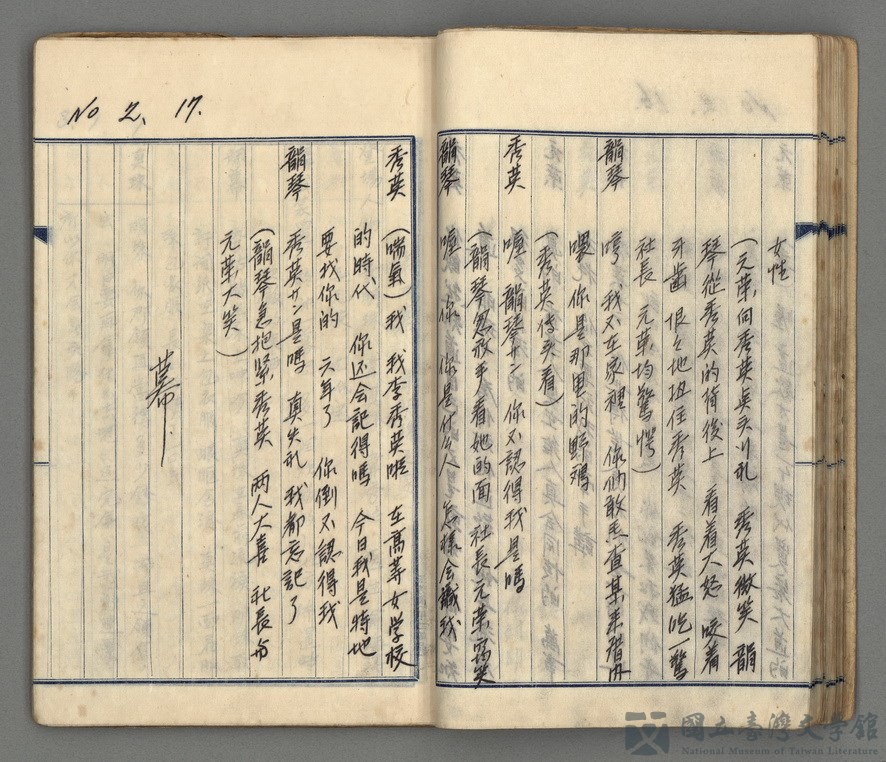 女性
(元荣向秀英点头行礼 秀英微笑 韻
琴從秀英的背後上 看着大怒 咬着
牙齒 恨々地扭住秀英 秀英猛吃一驚
社長 元荣均驚愕)
韻琴 哼 我不在家裡 你们敢羔查某来厝内
嘿 你是那里的野鸡
(秀英回头看)
秀英 喔 韻琴サン 你不認得我是嗎
(韻琴忽放手 看她的面 社長元荣窃笑
韻琴 喔 你 你是什么人 怎樣会識我
No 2. 17.
秀英 (喘氣)我 我李秀英啦 在高等女学校
的時代 你还会記得嗎 今日我是特地
要找你的 六年了 你倒不認得我
韻琴 秀英サン是嗎 真失礼 我都忘記了
(韻琴急抱緊秀英 两人大喜 社長与
元荣大笑)
幕
國立臺灣文學館
National Museum of Taiwan Literature